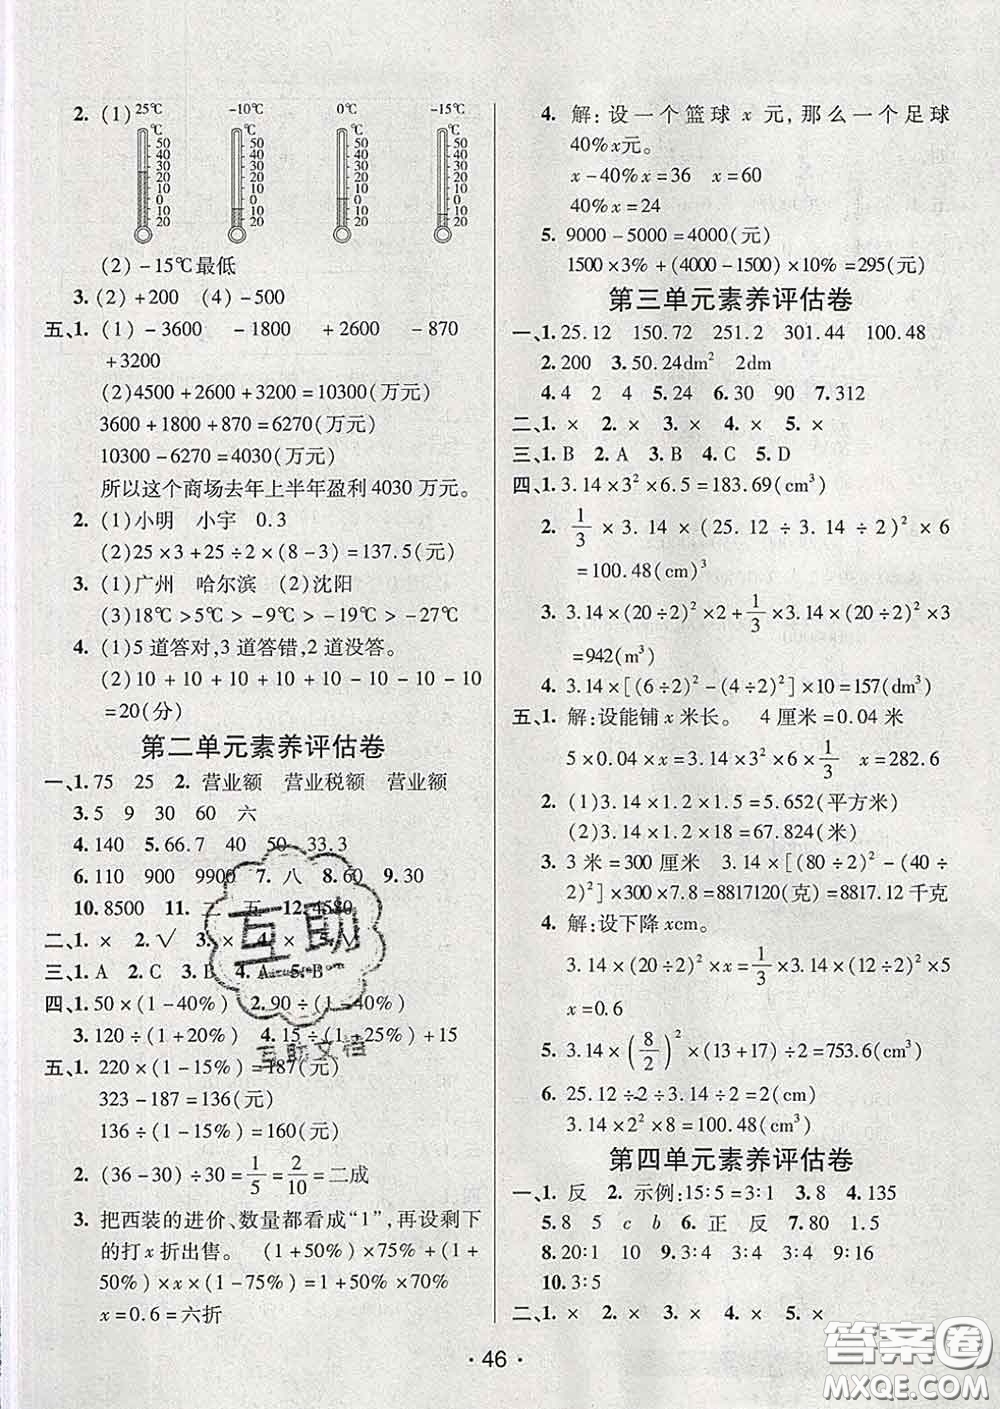 2. (1) 25℃ -10℃ 0℃ -15℃
℃ ℃ ℃ ℃
50 50 50 50
40 40 40 40
30 30 30 30
20 20 20 20
10 10 10 10
0 0 0 0
10 10 10 10
20 20 20 20
(2)-15℃最低
3. (2)+200 (4)-500
五、1. (1)-3600 -1800 +2600 -870
+3200
(2)4500+2600+3200=10300(万元)
3600+1800+870=6270(万元)
10300-6270=4030(万元)
所以这个商场去年上半年盈利4030万元。
2. (1)小明 小宇 0.3
(2)25×3+25÷2×(8-3)=137.5(元)
3. (1)广州 哈尔滨 (2)沈阳
(3)18℃>5℃>-9℃>-19℃>-27℃
4. (1)5道答对,3道答错,2道没答。
(2)10+10+10+10+10-10-10-10
=20(分)
第二单元素养评估卷
一、1.75 25 2.营业额 营业税额 营业额
3.5 9 30 60 六
4.140 5.66.7 40 50 33.3
6.110 900 9900 7.八 8.60 9.30
10.8500 11.二 五 12.4580
二、1.× 2.√ 3.× 4.× 5.√
三、1.A 2.C 3.B 4.A 5.B
四、1.50×(1-40%) 2.90÷(1-40%)
3.120÷(1+20%) 4.15÷(1-25%)+15
五、1. 220×(1-15%)=187(元)
323-187=136(元)
136÷(1-15%)=160(元)
2. (36-30)÷30=1/5=2/10=二成
3. 把西装的进价、数量都看成“1”,再设剩下
的打x折出售。 (1+50%)×75%+(1+
50%)×x×(1-75%)=1+50%×70%
x=0.6=六折
4. 解:设一个篮球x元,那么一个足球
40%x元。
x-40%x=36 x=60
40%x=24
5. 9000-5000=4000(元)
1500×3%+(4000-1500)×10%=295(元)
第三单元素养评估卷
一、1.25.12 150.72 251.2 301.44 100.48
2.200 3.50.24dm² 2dm
4.4 2 4 5.24 6.30 90 7.312
二、1.× 2.× 3.× 4.× 5.×
三、1.B 2.A 3.B 4.C 5.D
四、1.3.14×3²×6.5=183.69(cm³)
2. 1/3×3.14×(25.12÷3.14÷2)²×6
=100.48(cm)³
3. 3.14×(20÷2)²×2+1/3×3.14×(20÷2)²×3
=942(m³)
4. 3.14×[(6÷2)²-(4÷2)²]×10=157(dm³)
五、1. 解:设能铺x米长。 4厘米=0.04米
5×x×0.04=3.14×6²×3×1/3 x=282.6
2. (1)3.14×1.2×1.5=5.652(平方米)
(2)3.14×1.2×18=67.824(米)
3. 3米=300厘米 3.14×[(80÷2)²-(40÷
2)²]×300×7.8=8817120(克)=8817.12千克
4. 解:设下降xcm。
3.14×(20÷2)²×x=1/3×3.14×(12÷2)²×5
x=0.6
5. 3.14×(8/2)²×(13+17)÷2=753.6(cm³)
6. 25.12÷2÷3.14÷2=2(cm)
3.14×2²×8=100.48(cm³)
第四单元素养评估卷
一、1.反 2.示例:15∶5=3∶1 3.8 4.135
5.8 5 c b 6.正 反 7.80 1.5
8.20∶1 10 9.3∶4 3∶4 9∶16
10.3∶5
二、1.× 2.× 3.× 4.× 5.×
互助
互助文档
·46·
答案圈
MXQE.COM